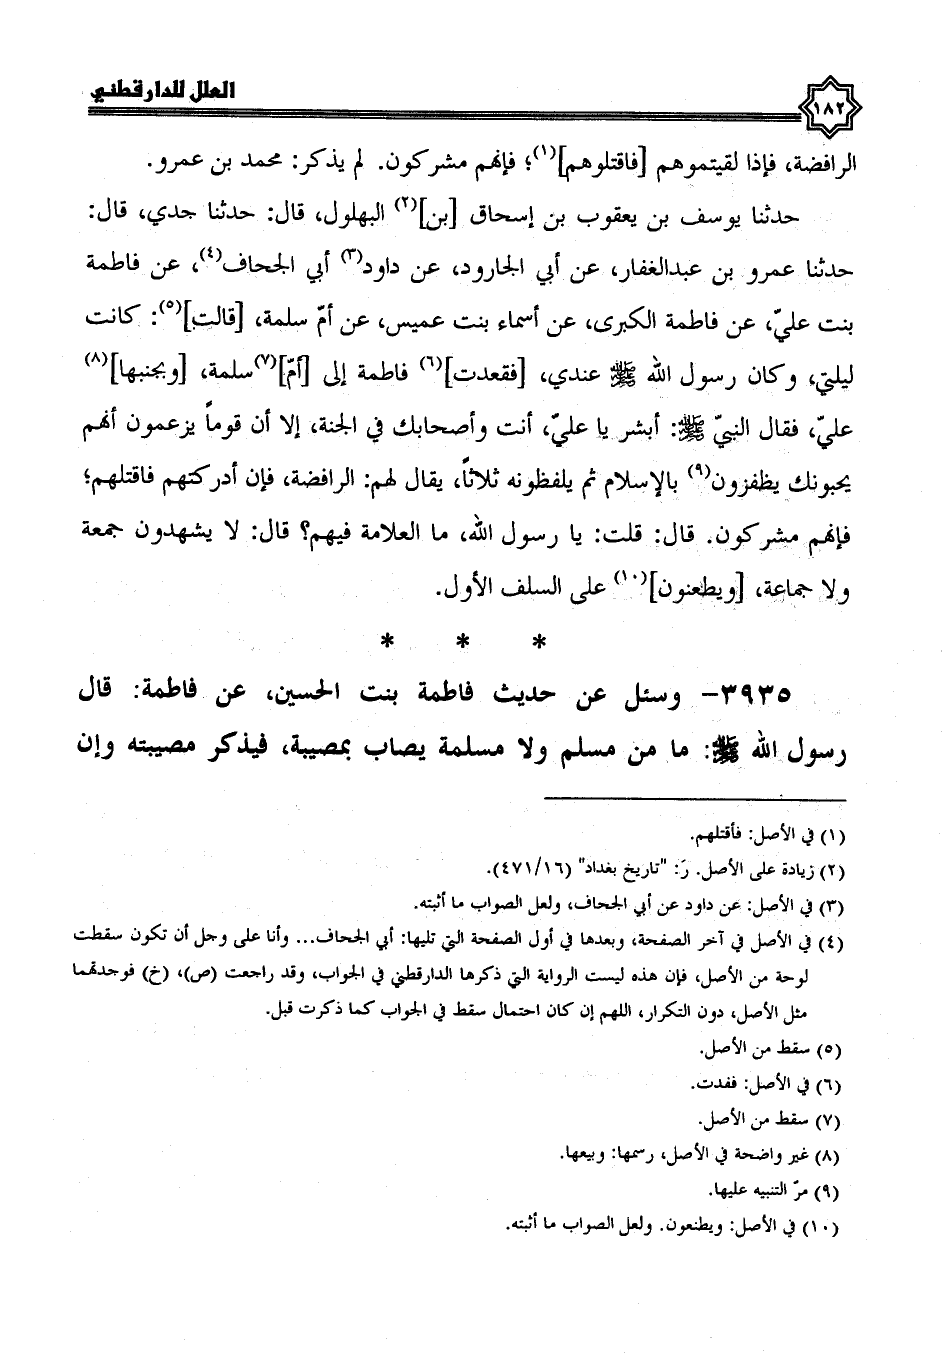 العلل للدارقطني
١٨٢
الرافضة، فإذا لقيتموهم [فاقتلوهم](١)؛ فإنهم مشركون. لم يذكر: محمد بن عمرو.
حدثنا يوسف بن يعقوب بن إسحاق [بن](٢) البهلول، قال: حدثنا جدي، قال:
حدثنا عمرو بن عبدالغفار، عن أبي الجارود، عن داود(٣) أبي الجحاف(٤)، عن فاطمة
بنت عليّ، عن فاطمة الكبرى، عن أسماء بنت عميس، عن أمّ سلمة، [قالت](٥): كانت
ليلتي، وكان رسول الله ﷺ عندي، [فقعدت](٦) فاطمة إلى [أمّ](٧) سلمة، [وبجنبها](٨)
عليّ، فقال النبيّ ﷺ: أبشر يا عليّ، أنت وأصحابك في الجنة، إلا أن قوماً يزعمون أنهم
يحبونك يظفزون(٩) بالإسلام ثم يلفظونه ثلاثاً، يقال لهم: الرافضة، فإن أدركتهم فاقتلهم؛
فإنهم مشركون. قال: قلت: يا رسول الله، ما العلامة فيهم؟ قال: لا يشهدون جمعة
ولا جماعة، [ويطعنون](١٠) على السلف الأول.
* * *
٣٩٣٥- وسئل عن حديث فاطمة بنت الحسين، عن فاطمة: قال
رسول الله ﷺ: ما من مسلم ولا مسلمة يصاب بمصيبة، فيذكر مصيبته وإن
(١) في الأصل: فأقتلهم.
(٢) زيادة على الأصل. رَ: "تاريخ بغداد" (٤٧١/١٦).
(٣) في الأصل: عن داود عن أبي الجحاف، ولعل الصواب ما أثبته.
(٤) في الأصل في آخر الصفحة، وبعدها في أول الصفحة التي تليها: أبي الجحاف... وأنا على وجل أن تكون سقطت
لوحة من الأصل، فإن هذه ليست الرواية التي ذكرها الدارقطني في الجواب، وقد راجعت (ص)، (خ) فوجدتهما
مثل الأصل، دون التكرار، اللهم إن كان احتمال سقط في الجواب كما ذكرت قبل.
(٥) سقط من الأصل.
(٦) في الأصل: ففدت.
(٧) سقط من الأصل.
(٨) غير واضحة في الأصل، رسمها: وبيعها.
(٩) مرّ التنبيه عليها.
(١٠) في الأصل: ويطنعون. ولعل الصواب ما أثبته.